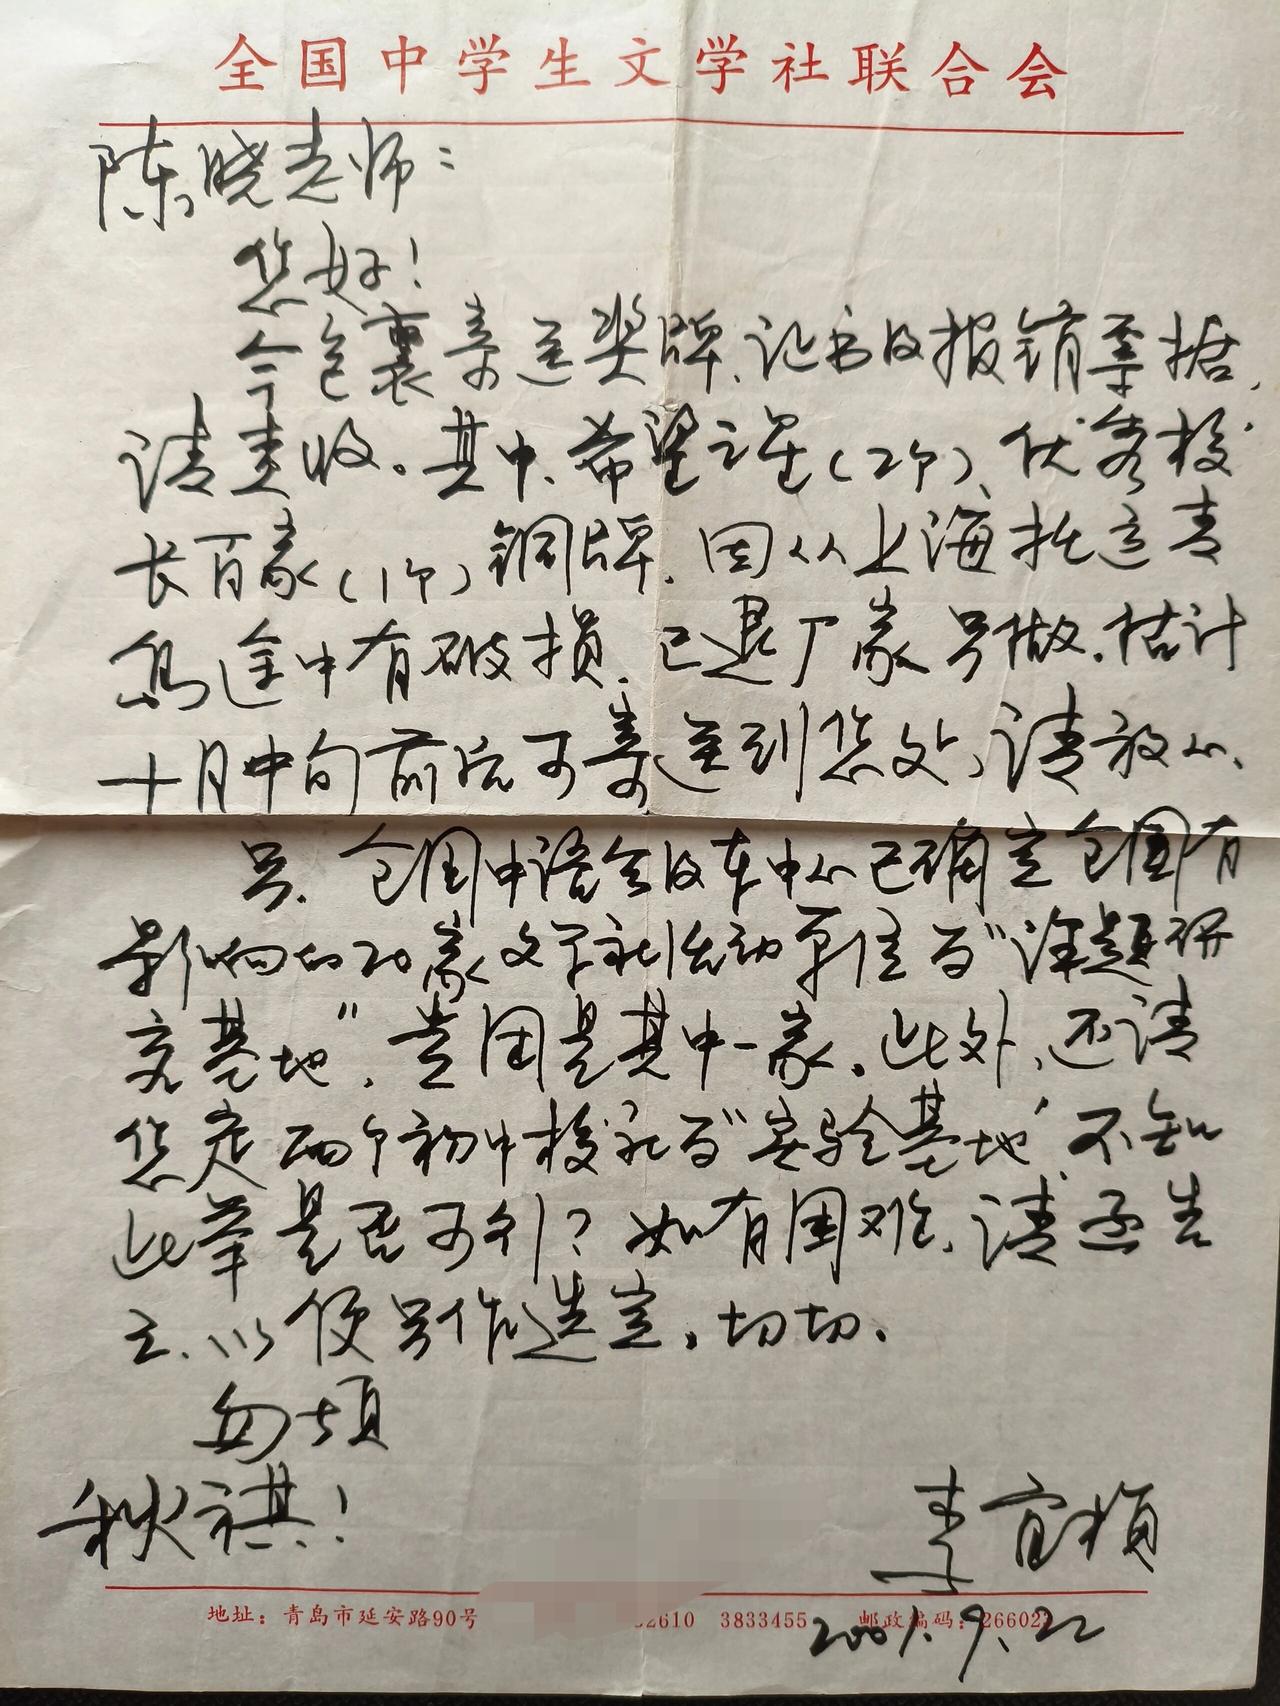 全国中学生文学社联合会
陈晓老师：
您好！
今包裹寄送奖牌、证书及报销票据，
请查收。其中、希望之星（2个）、优秀校
长百家（1个）铜牌，因从上海托运青
岛途中有破损，已退厂家另做。估计
十月中旬前后可寄送到您处，请放心、
另，全国中语会及本中心已确定全国有
影响的20家文学社活动单位为“课题研
究基地”，贵团是其中一家。此外，还请
您定两个初中校社为“实验基地”不知
此举是否可行？如有困难，请函告
之、以便另作选定。切切。
匆颂
秋祺！
李宜桢
地址：青岛市延安路90号 2610 3833455 邮政编码：26602
2001.9.22